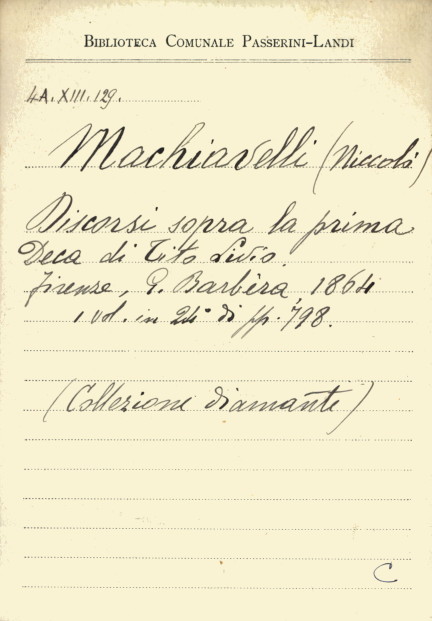 BIBLIOTECA COMUNALE PASSERINI-LANDI
4A.XIII.129.
Machiavelli (Niccolò)
Discorsi sopra la prima
Deca di Tito Livio.
Firenze, G. Barbèra, 1864
1 vol. in 24° di pp. 798.
(Collezione diamante)
C